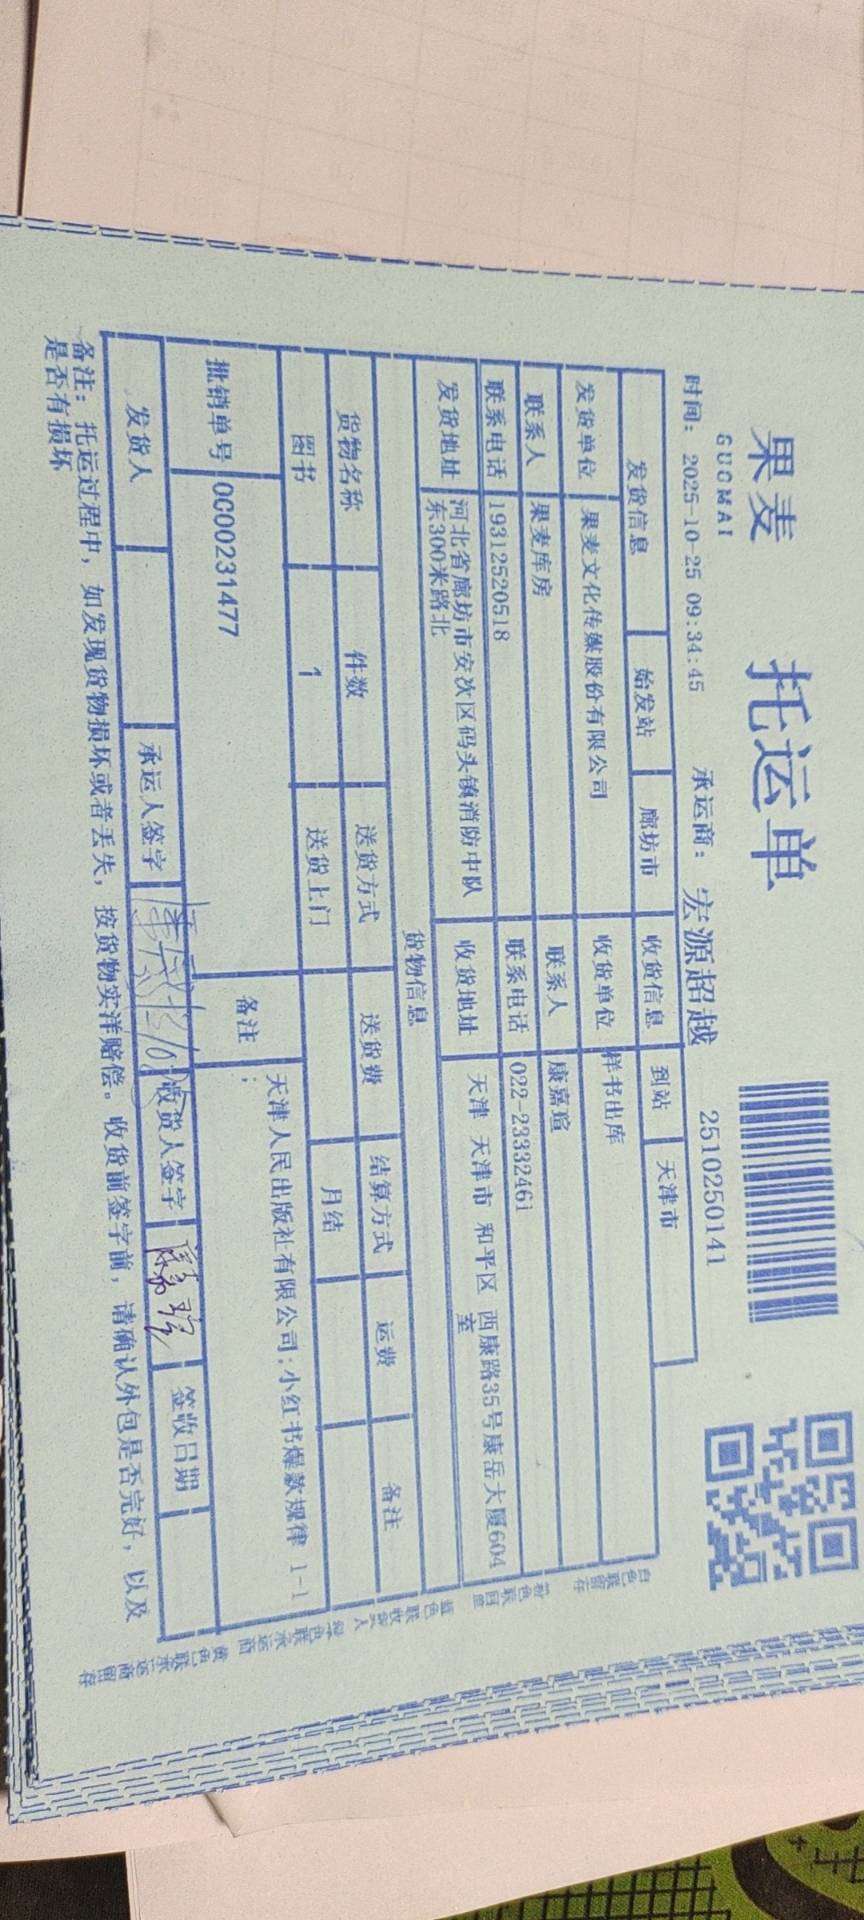 果麦
GUOMAI
托运单
时间: 2025-10-25 09:34:45 承运商: 宏源超越 2510250141
发货信息 始发站 廊坊市 收货信息 到站 天津市
发货单位 果麦文化传媒股份有限公司 收货单位 样书出库
联系人 果麦库房 联系人 康嘉瑄
联系电话 19312520518 联系电话 022-23332461
发货地址 河北省廊坊市安次区码头镇消防中队东300米路北 收货地址 天津 天津市 和平区 西康路35号康岳大厦604室
货物信息
货物名称 件数 送货方式 送货费 结算方式 运费 备注
图书 1 送货上门 月结
批销单号 0C00231477 备注 天津人民出版社有限公司;小红书爆款规律 1-1;
发货人 承运人签字 收货人签字 签收日期
备注: 托运过程中, 如发现货物损坏或者丢失, 按货物实洋赔偿。收货前签字前, 请确认外包是否完好, 以及
是否有损坏
白色联留存 粉色联回单 蓝色联收货人 绿色联承运商 黄色联承运商留存